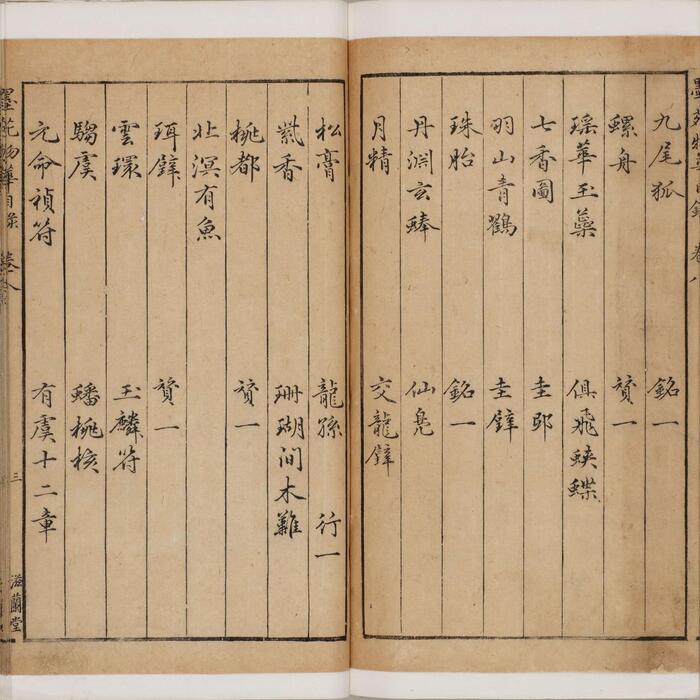 墨苑物華目錄 卷八
九尾狐 銘一
螺舟 贊一
瑤華玉蘂 俱飛蛺蝶
七香圖 圭邸
羽山青鸛 圭璧
珠胎 銘一
丹淵玄蜯 仙鳧
月精 交龍璧
松膏 龍孫 行一
紫香 珊瑚間木難
桃都 贊一
北溟有魚
珥璧 贊一
雲環 玉麟符
騶虞 蟠桃核
元命禎符 有虞十二章
墨苑物華目錄 卷八 三 滋蘭堂